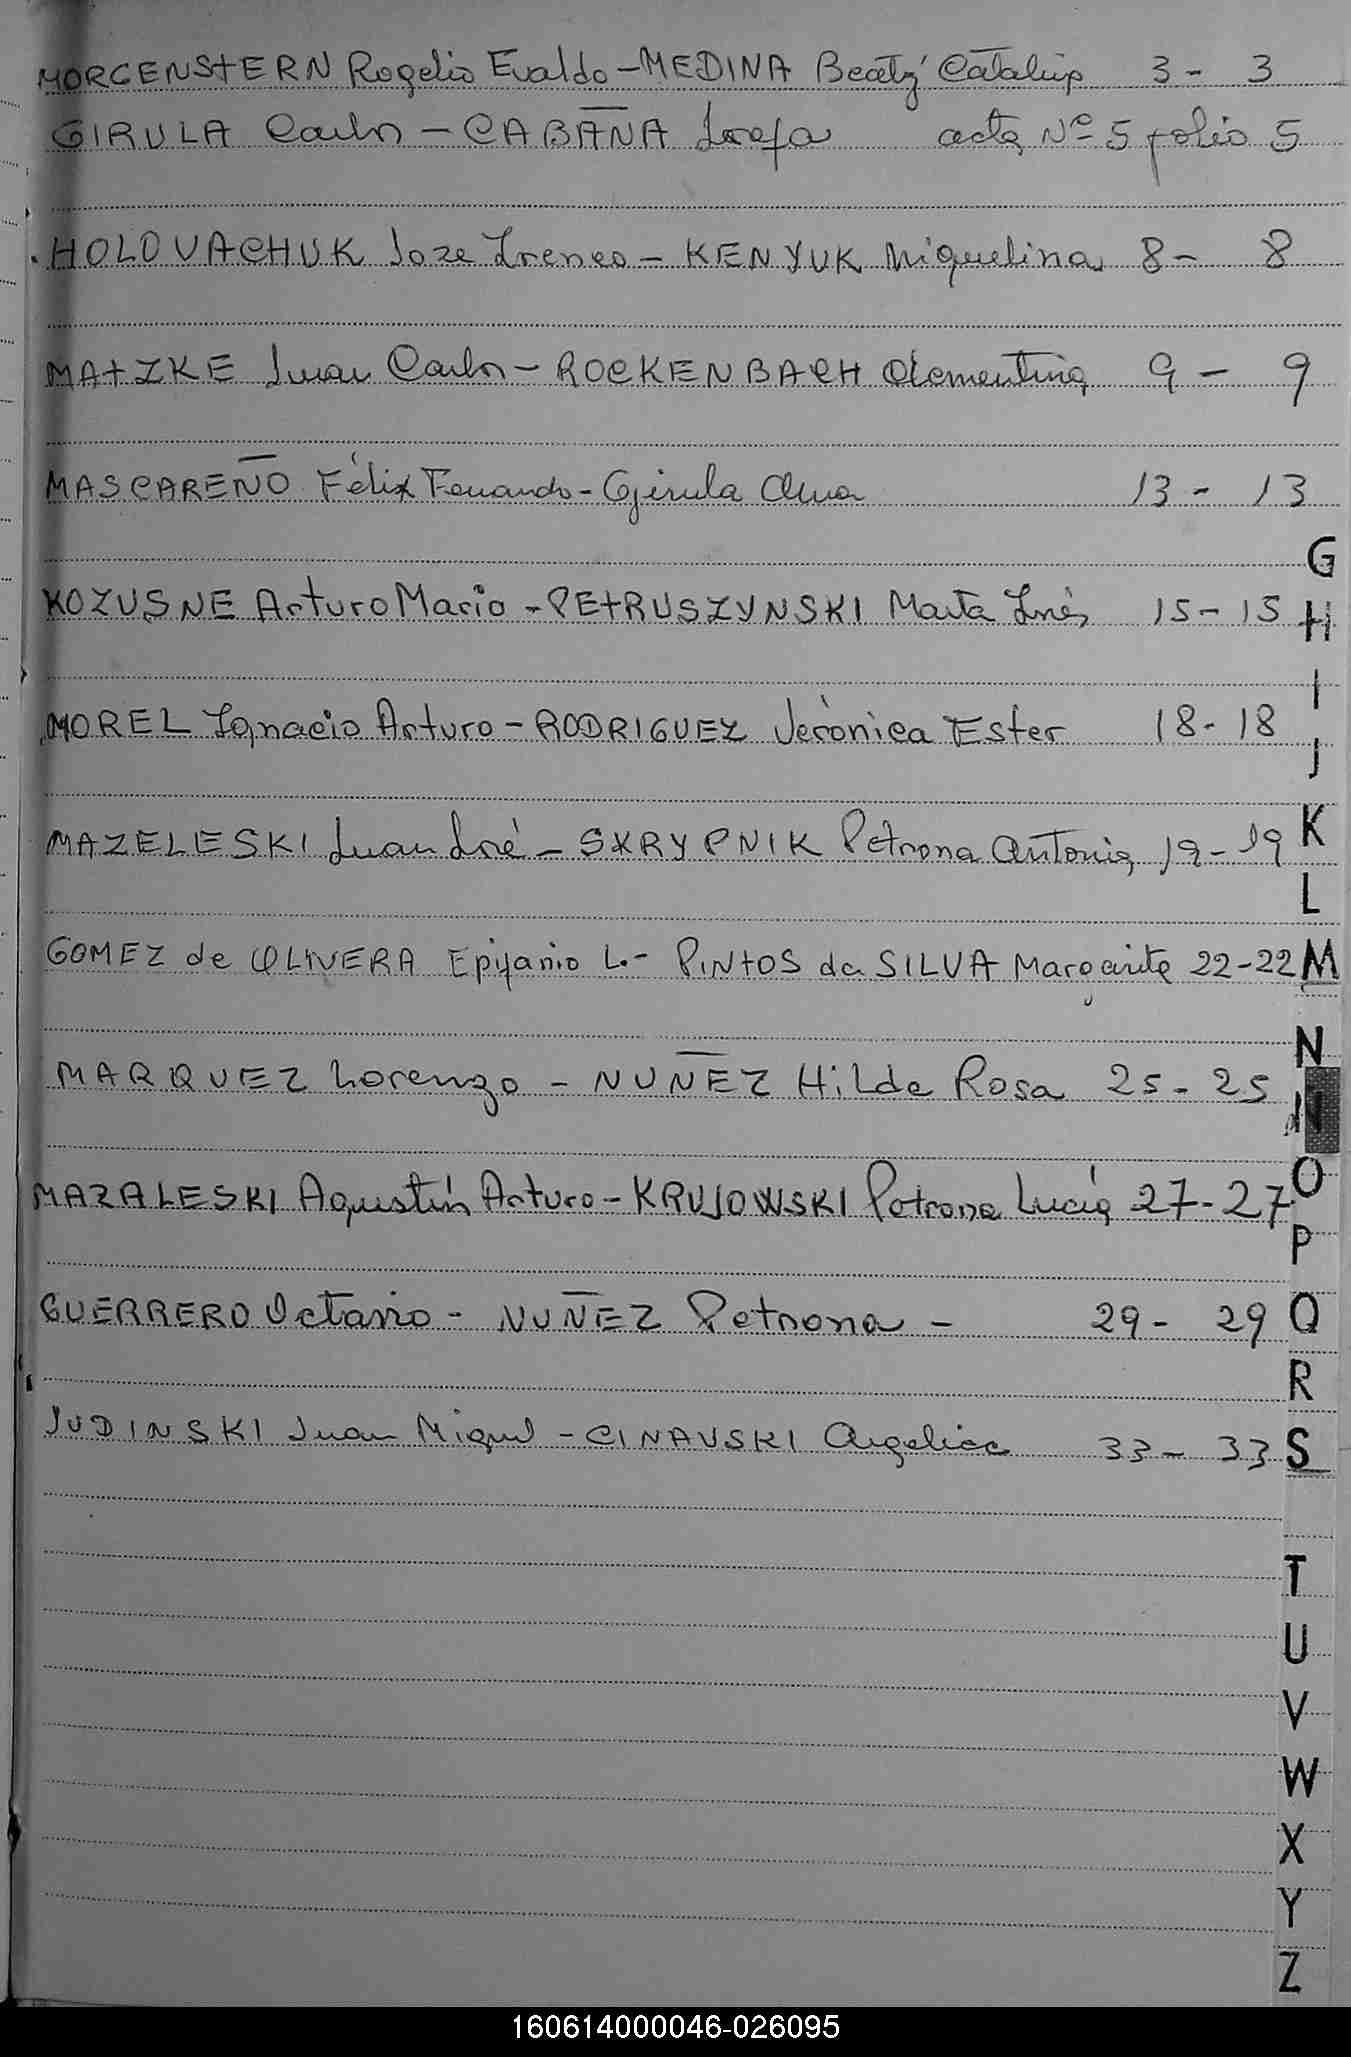 MORGENSTERN Rogelio Evaldo - MEDINA Beatz Catalina 3 - 3
GIRULA Carlos - CABAÑA Josefa acta Nº 5 folio 5
HOLOVACHUK Joze Ireneo - KENYUK Miguelina 8 - 8
MATZKE Juan Carlos - ROCKENBACH Clementina 9 - 9
MASCAREÑO Félix Fernando - Girula Alma 13 - 13
KOZUSNE Arturo Mario - PETRUSZYNSKI Marta Inés 15 - 15
MOREL Ignacio Arturo - RODRIGUEZ Verónica Ester 18 - 18
MAZELESKI Juan José - SKRYPNIK Petrona Antonia 19 - 19
GOMEZ de OLIVERA Epifanio L. - PINTOS da SILVA Margarita 22 - 22
MARQUEZ Lorenzo - NUÑEZ Hilda Rosa 25 - 25
MAZALESKI Agustín Arturo - KRUJOWSKI Petrona Lucía 27 - 27
GUERRERO Octavio - NUÑEZ Petrona - 29 - 29
JUDINSKI Juan Miguel - CINAVSKI Angelica 33 - 33
G
H
I
J
K
L
M
N
Ñ
O
P
Q
R
S
T
U
V
W
X
Y
Z
160614000046-026095